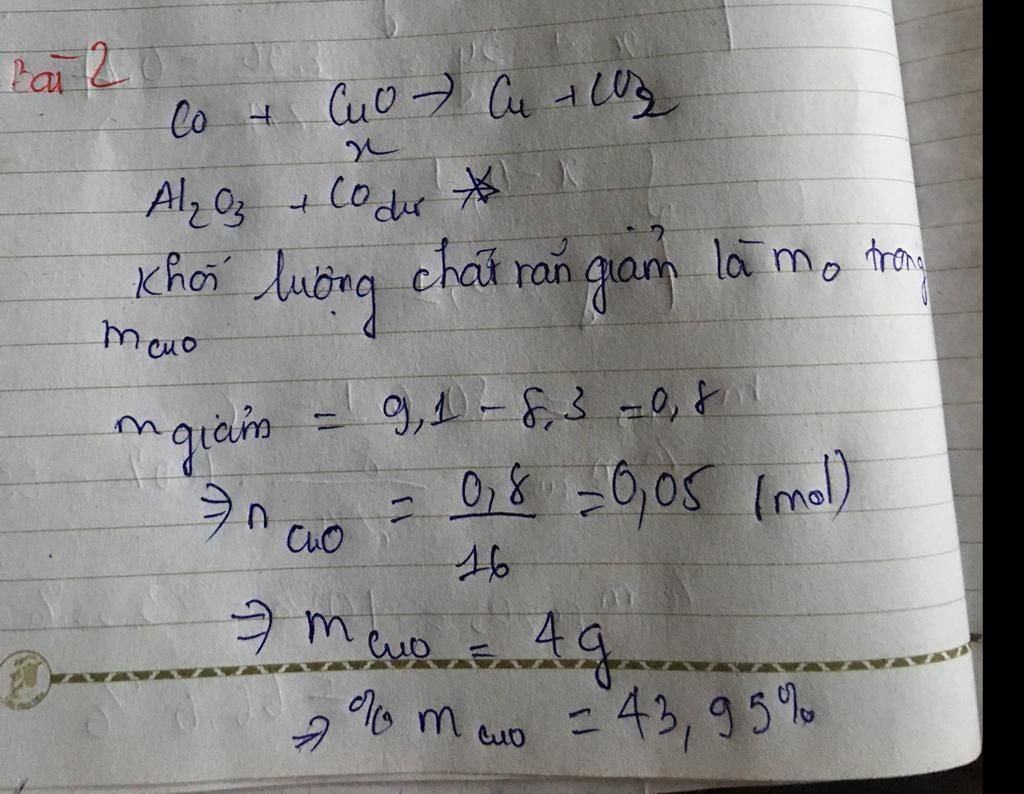 Bài 2
CO + CuO → Cu + CO2
x
Al2O3 + CO dư ↛
Khối lượng chất rắn giảm là mO trong
mCuO
m giảm = 9,1 - 8,3 = 0,8
⇒ nCuO = 0,8/16 = 0,05 (mol)
⇒ mCuO = 4g
⇒ % mCuO = 43,95%